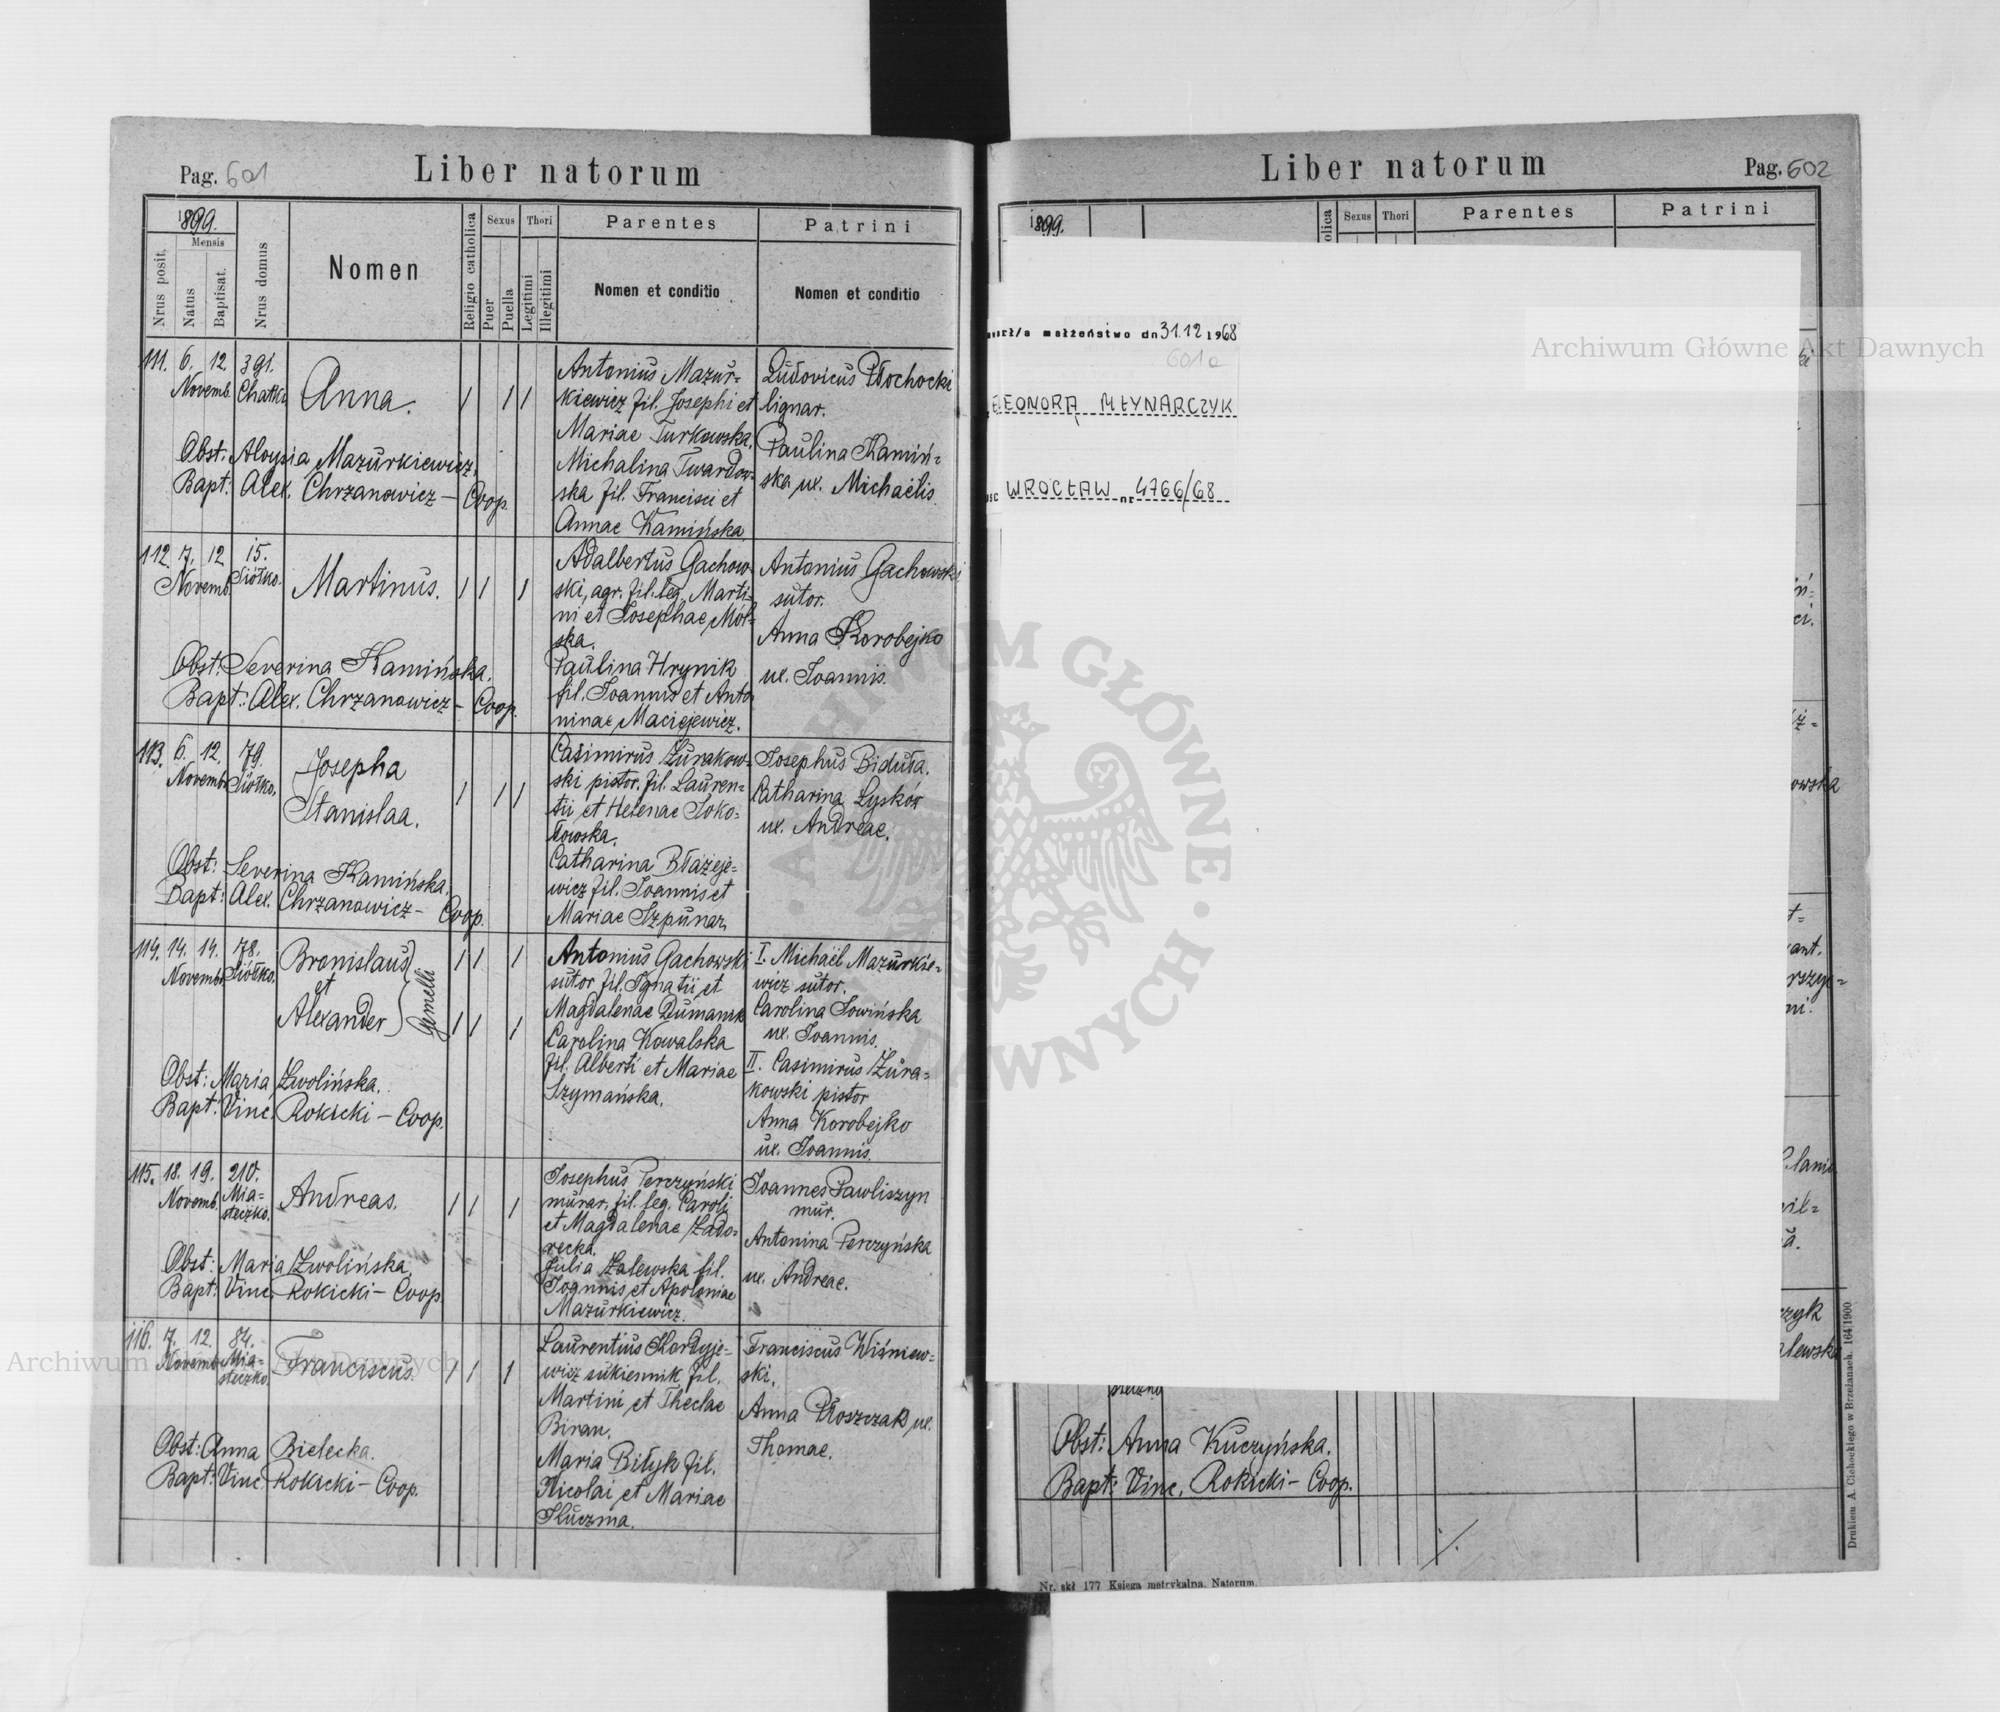 Pag. 601
Liber natorum
1899.
Mensis
Nrus posit.
Natus
Baptisat.
Nrus domus
Nomen
Religio catholica
Sexus
Puer
Puella
Thori
Legitimi
Illegitimi
Parentes
Nomen et conditio
Patrini
Nomen et conditio
111. 6. 12. 391.
Novemb. Chatki
Anna.
Obst: Aloysia Mazurkiewicz,
Bapt: Alex. Chrzanowicz - Coop.
Antonius Mazur-
kiewicz fil. Josephi et
Mariae Turkowska,
Michalina Twardow-
ska fil. Francisci et
Annae Kamińska.
Ludovicus Płochocki
lignar.
Paulina Kamiń-
ska ux. Michaëlis.
112. 7. 12 15.
Novemb. Siółko.
Martinus.
Obst: Severina Kamińska.
Bapt: Alex. Chrzanowicz - Coop.
Adalbertus Gachow-
ski, agr. fil. leg. Marti-
ni et Josephae Mól-
ska.
Paulina Hrynik
fil. Joannis et Anto
ninae Maciejewicz.
Antonius Gachowski
sutor.
Anna Korobejko
ux. Joannis.
113. 6. 12. 79.
Novemb. Siółko.
Josepha
Stanislaa.
Obst: Severina Kamińska.
Bapt: Alex. Chrzanowicz - Coop.
Casimirus Żurakow-
ski pistor. fil. Lauren-
tii et Helenae Soko-
łowska.
Catharina Błażeje-
wicz fil. Joannis et
Mariae Szpunar
Josephus Biduła.
Catharina Łysków
ux. Andreae.
114. 14. 14. 78.
Novemb. Siółko.
Bronislaus
et
Alexander
Gemelli
Obst: Maria Zwolińska.
Bapt: Vinc. Rokicki - Coop.
Antonius Gachowski
sutor fil. Ignatii et
Magdalenae Dumanik
Carolina Kowalska
fil. Alberti et Mariae
Szymańska.
I. Michaël Mazurkie-
wicz sutor.
Carolina Sowińska
ux. Joannis.
II. Casimirus Żura-
kowski pistor
Anna Korobejko
ux. Joannis.
115. 18. 19. 210.
Novemb. Mia-
steczko.
Andreas.
Obst: Maria Zwolińska
Bapt: Vinc. Rokicki - Coop.
Josephus Perczyński
murar, fil. leg. Caroli
et Magdalenae Zado-
recka.
Julia Zalewska fil.
Joannis et Apoloniae
Mazurkiewicz.
Joannes Pawliszyn
mur.
Antonina Perczyńska
ux. Andreae.
116. 7. 12. 84.
Novemb. Mia-
steczko.
Franciscus.
Obst: Anna Bielecka.
Bapt: Vinc. Rokicki - Coop.
Laurentius Kordyje-
wicz sukiennik fil.
Martini et Theclae
Biran.
Maria Biłyk fil.
Nicolai et Mariae
Kuczma.
Franciscus Wiśniew-
ski.
Anna Płoszczak ux.
Thomae.
Liber natorum
Pag. 602
1899.
olica
Sexus
Thori
Parentes
Patrini
arł/a małżeństwo dn 31.12 1968
601a
ELEONORĄ MŁYNARCZYK
WROCŁAW nr 4766/68
owska
ant.
czyk
alewska
steczko
Obst: Anna Kuczyńska.
Bapt: Vinc. Rokicki - Coop.
Nr. skł 177 Księga metrykalna. Natorum.
Drukiem A. Cichockiego w Brzeżanach. 164/1900
Archiwum Główne Akt Dawnych
Archiwum Główne Akt Dawnych
ARCHIWUM GŁÓWNE AKT DAWNYCH